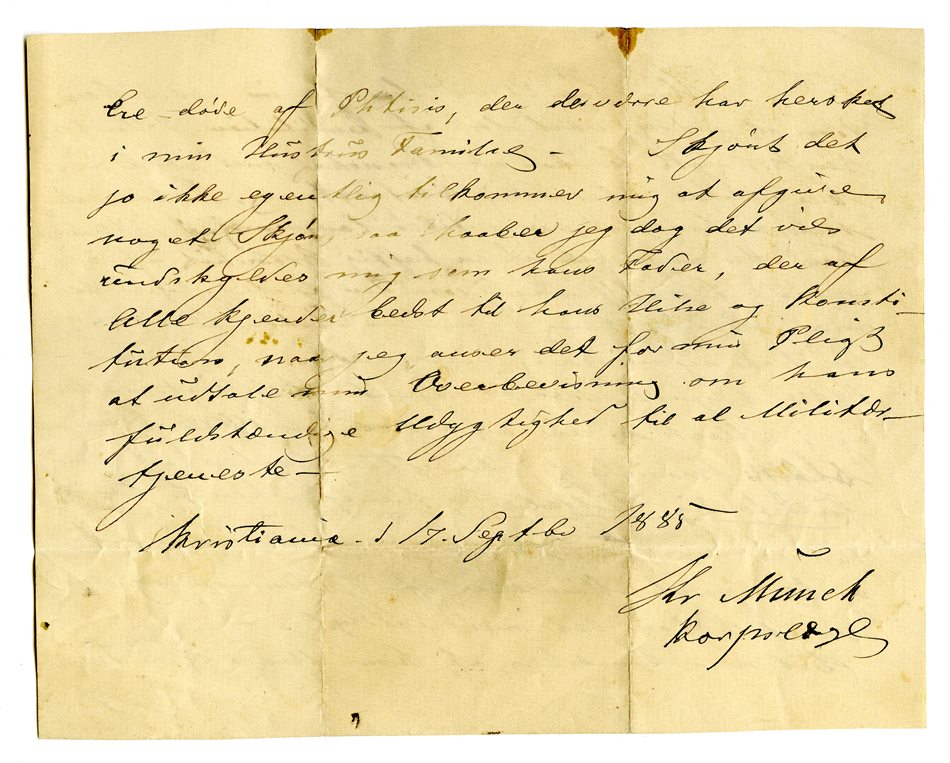 ere døde af Phtisis, der desværre har hersket
i min Hustrus Familie – Skjønt det
jo ikke egentlig tilkommer mig at afgive
noget Skjøn, saa haaber jeg dog det vil
undskyldes mig som hans Fader, der af
Alle kjender bedst til hans Helse og Konsti-
tution, naar jeg anser det for min Pligt
at udtale min Overbevisning om hans
fuldstændige Udygtighed til al Militær-
tjeneste –
Kristiania d 17. Septbr 1885
Chr Munch
Korpslæge